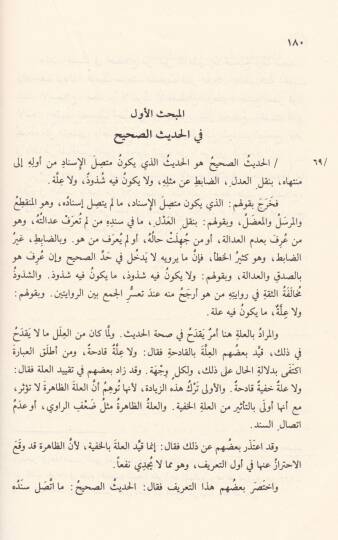 ١٨٠
المبحث الأول
في الحديث الصحيح
٦٩/ / الحديثُ الصحيحُ هو الحديثُ الذي يكونُ متصِلَ الإسنادِ من أولِهِ إلى
منتهاه، بنقلِ العدل، الضابطِ عن مثلِهِ، ولا يكونُ فيه شُذوذٌ، ولا عِلَّة.
فخَرَجَ بقولهم: الذي يكون متصِلَ الإسناد، ما لم يتصِل إسنادُه، وهو المنقطِعُ
والمرسَلُ والمعضَلُ، وبقولهم: بنقلِ العَدْل، ما في سندِه من لم تُعرَف عدالتُهُ، وهو
من عُرِفَ بعدمِ العدالة، أو من جُهِلَتْ حالُهُ، أو لم يُعرَف من هو. وبالضابطِ، غيرُ
الضابط، وهو كثيرُ الخطأ، فإنَّ ما يرويه لا يَدخُل في حَدِّ الصحيح وإن عُرِفَ هو
بالصدقِ والعدالة، وبقولهم: ولا يكونُ فيه شذوذ، ما يكونُ فيه شذوذ. والشذوذُ
مُخالَفَةُ الثقةِ في روايتِهِ من هو أرجَحُ منه عندَ تعسُّرِ الجمع بين الروايتين. وبقولهم:
ولا عِلَّةٌ، ما يكونُ فيه علة.
والمرادُ بالعلةِ هنا أمرٌ يَقدَحُ في صحة الحديث. ولمَّا كان من العِلَل ما لا يَقدَحُ
في ذلك، قيَّد بعضُهم العِلَّةَ بالقادحةِ فقال: ولا عِلَّةٌ قادحةٌ، ومن أطلَق العبارةَ
اكتفَى بدلالةِ الحال على ذلك، ولكلٍّ وِجْهَة. وقد زاد بعضُهم في تقييد العلة فقال:
ولا علةٌ خفيةٌ قادحةٌ. والأَولى تَرْكُ هذه الزيادة، لأنها تُوهِمُ أنَّ العلةَ الظاهرةَ لا تؤثر،
مع أنها أولَى بالتأثير من العلةِ الخفية. والعلةُ الظاهرةُ مثلُ ضَعْفِ الراوي، أو عدَمُ
اتصالِ السند.
وقد اعتَذَر بعضُهم عن ذلك فقال: إنما قيَّد العلةَ بالخفية، لأنَّ الظاهرةَ قد وقَعَ
الاحترازُ عنها في أول التعريف، وهو مما لا يُجدِي نفعاً.
واختَصَر بعضُهم هذا التعريفَ فقال: الحديثُ الصحيحُ: ما اتَّصل سَنَدُه